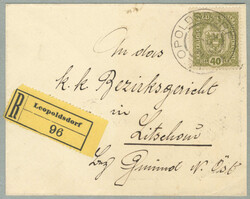 OPOLD
40
An das
k. k. Bezirksgericht
in
Litschau
Bez Gmünd N. Öst
R
Leopoldsdorf
96